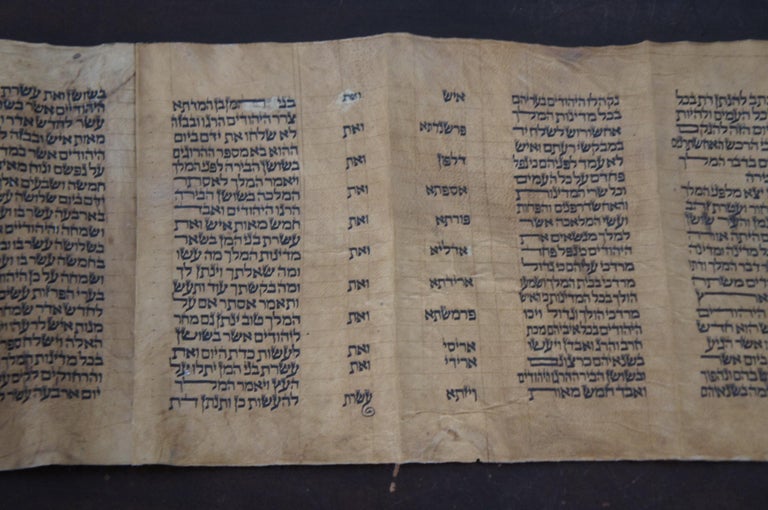 כתב להנתן דת בכל
כל העמים ולהיות
יום הזה להנקם
הרכש האחשתרנים
ם בדבר המלך
בירה
יצא מלפני המלך
חור ועטרת
והעיר שושן
ם היתה אורה
מדינה ומדינה
דבר המלך ודתו
הארץ
הוא חדש
אשר הגיע
ביום אשר
בהם ונהפוך
המה בשנאיהם
נקהלו היהודים בעריהם
בכל מדינות המלך
אחשורוש לשלח יד
במבקשי רעתם ואיש
לא עמד לפניהם כי נפל
פחדם על כל העמים
וכל שרי המדינות
והאחשדרפנים והפחות
ועשי המלאכה אשר
למלך מנשאים את
היהודים כי נפל פחד
מרדכי עליהם כי גדול
מרדכי בבית המלך ושמעו
הולך בכל המדינות כי האיש
מרדכי הולך וגדול ויכו
היהודים בכל איביהם מכת
חרב והרג ואבדן ויעשו
בשנאיהם כרצונם
ובשושן הבירה הרגו היהודים
ואבד חמש מאות
איש ואת
פרשנדתא ואת
דלפון ואת
אספתא ואת
פורתא ואת
אדליא ואת
ארידתא ואת
פרמשתא ואת
אריסי ואת
ארידי ואת
ויזתא עשרת
בני המן בן המדתא
צרר היהודים הרגו ובבזה
לא שלחו את ידם ביום
ההוא בא מספר ההרוגים
בשושן הבירה לפני המלך
ויאמר המלך לאסתר
המלכה בשושן הבירה
הרגו היהודים ואבד
חמש מאות איש ואת
עשרת בני המן בשאר
מדינות המלך מה עשו
ומה שאלתך וינתן לך
ומה בקשתך עוד ותעש
ותאמר אסתר אם על
המלך טוב ינתן גם מחר
ליהודים אשר בשושן
לעשות כדת היום ואת
עשרת בני המן יתלו על
העץ ויאמר המלך
להעשות כן ותנתן דת
בשושן ואת עשרת
היהודיים אשר בשוש
עשר לחדש אדר וי
מאות איש ובבזה ל
היהודים אשר במד
על נפשם ונוח מאיב
חמשה ושבעים אלף
ידם ביום שלושה עש
בארבעה עשר בו וע
ושמחה והיהודיים
בשלושה עשר בו ו
בחמשה עשר בו וע
ושמחה על כן היהו
בערי הפרזות עשים
לחדש אדר שמחה
מנות איש לרעהו
האלה וישלח ספר
בכל מדינות המלך
והרחוקים לקים על
יום ארבעה עשר ל